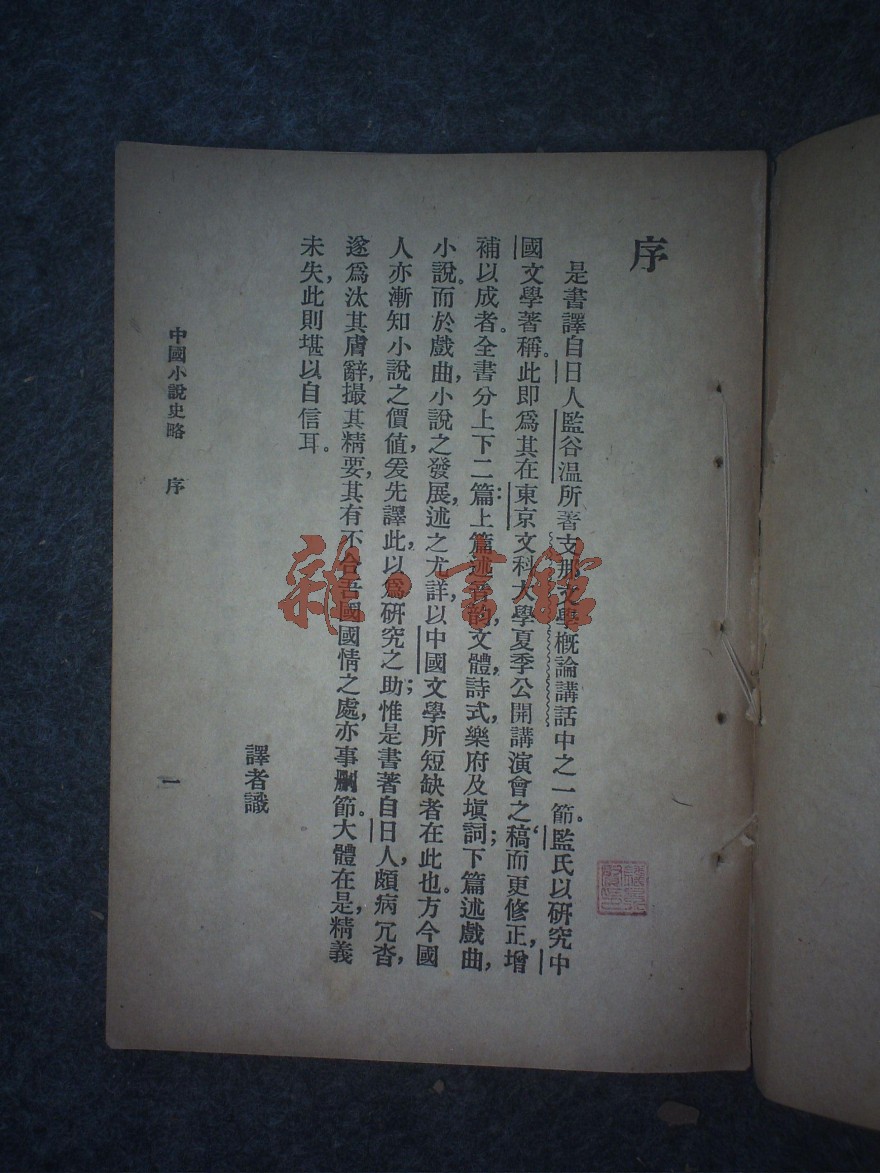 序
是書譯自日人監谷温所著支那文學概論講話中之一節。監氏以研究中
國文學著稱。此即爲其在東京文科大學夏季公開講演會之稿，而更修正，增
補以成者。全書分上下二篇：上篇述音韵，文體，詩式，樂府及塡詞；下篇述戲曲，
小說。而於戲曲，小說之發展，述之尤詳，以中國文學所短缺者在此也。方今國
人亦漸知小說之價値，爰先譯此，以爲研究之助；惟是書著自日人，頗病冗沓，
遂爲汰其膚辭，撮其精要，其有不合吾國國情之處，亦事刪節。大體在是，精義
未失，此則堪以自信耳。
譯者識
中國小說史略 序
一
雜·書館